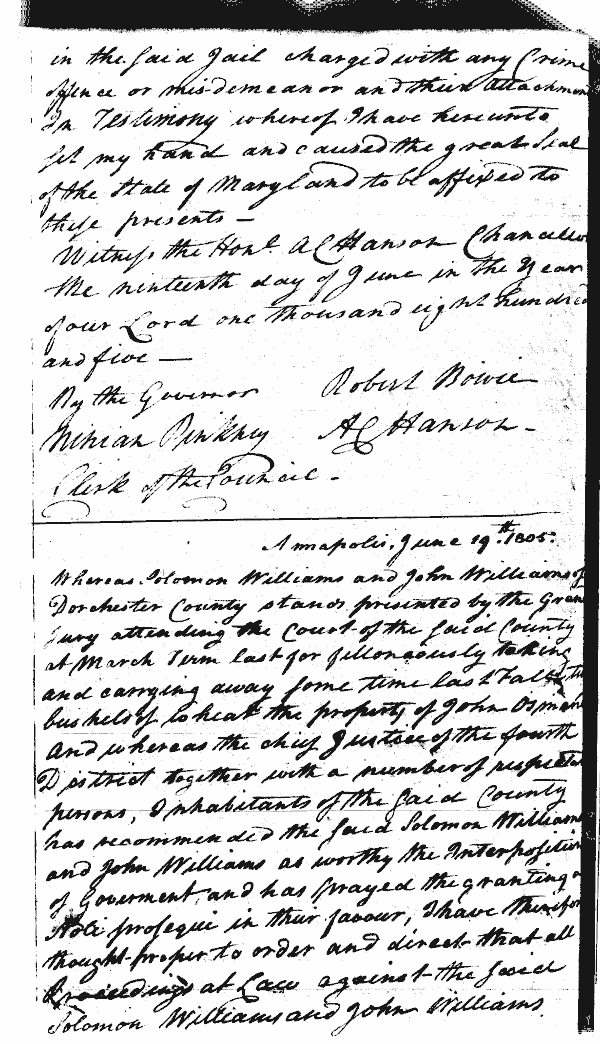 in the said Jail charged with any Crime
offence or misdemeanor and their Attachmen
In Testimony whereof I have hereunto
set my hand and caused the great Seal
of the State of Maryland to be affixed to
these presents —
Witness the Honl. A C Hanson Chancellor
the ninteenth day of June in the Year
of our Lord one thousand eight hundred
and five —
By the Governor Robert Bowie
Ninian Pinkney A C Hanson -
Clerk of the Council -
Annapolis, June 19th. 1805.
Whereas Solomon Williams and John Williams of
Dorchester County stands presented by the Gran
Jury attending the Court of the said County
at March Term last for fellonously taking
and carrying away some time last Fall
bushels of wheat the property of John Osment
And whereas the chief Justice of the fourth
District together with a number of respectable
persons, Inhabitants of the said County
has recommended the said Solomon Williams
and John Williams as worthy the Interposition
of Goverment, and has prayed the granting a
Noli prosequi in their favour, I have therefor
thought proper to order and direct that all
Proceedings at Law against the said
Solomon Williams and John Williams